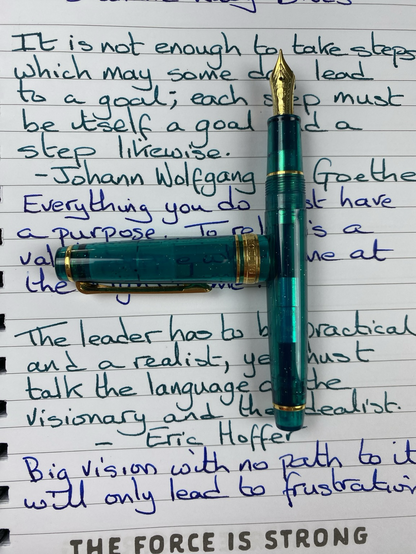 It is not enough to take steps
which may some lead
to a goal; each must
be itself a goal a
step likewise.
- Johann Wolfgang Goethe
Everything you do have
a purpose. To is a
at
the
The leader has to practical
and a realist, must
talk the language
visionary and idealist.
- Eric Hoffer
Big vision with no path to it
will only lead to
THE FORCE IS STRONG